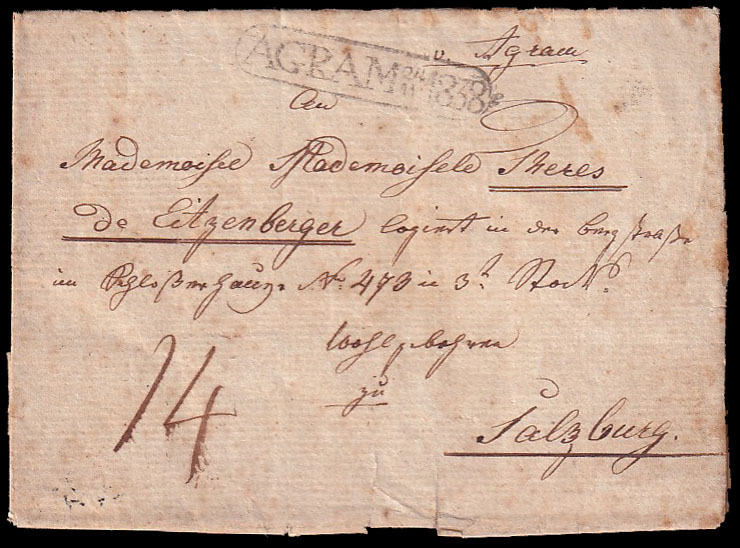 v. Agram
AGRAM 24/11 1838
An
Mademoisel Mademoisele Theres
de Eitzenberger logiert in der bergstraße
im Schloßerhauz. No. 473 in 3t. Stock.
Wohlgebohren
zu
14
Salzburg.